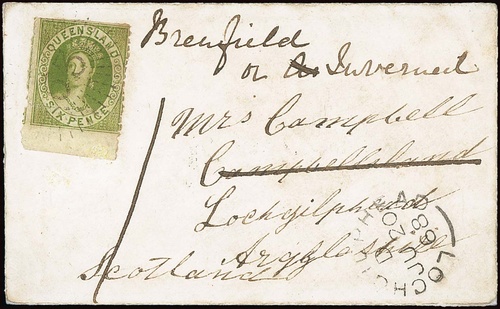 QUEENSLAND
SIX PENCE
Brenfield
or Inverneil
Mrs Campbell
Campbellsland
Lochgilphead
Argyleshire
Scotland